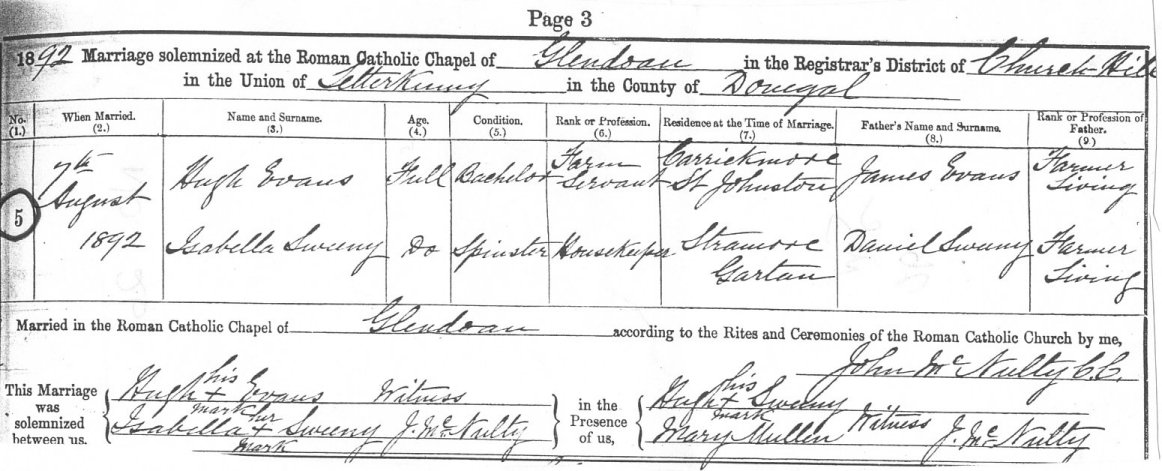 Page 3
1892 Marriage solemnized at the Roman Catholic Chapel of Glendoan in the Registrar's District of Church Hill
in the Union of Letterkenny in the County of Donegal
No. (1.) When Married. (2.) Name and Surname. (3.) Age. (4.) Condition. (5.) Rank or Profession. (6.) Residence at the Time of Marriage. (7.) Father's Name and Surname. (8.) Rank or Profession of Father. (9.)
5 7th August 1892 Hugh Evans Full Bachelor Farm Servant Carrickmore St Johnston James Evans Farmer Living
Isabella Sweeny Do Spinster Housekeeper Stramore Gartan Daniel Sweeny Farmer Living
Married in the Roman Catholic Chapel of Glendoan according to the Rites and Ceremonies of the Roman Catholic Church by me,
John McNulty C.C.
This Marriage was solemnized between us,
Hugh his + mark Evans Witness
Isabella her + mark Sweeny J. McNulty
in the Presence of us,
Hugh his + mark Sweeny
Mary Mullen Witness J. McNulty